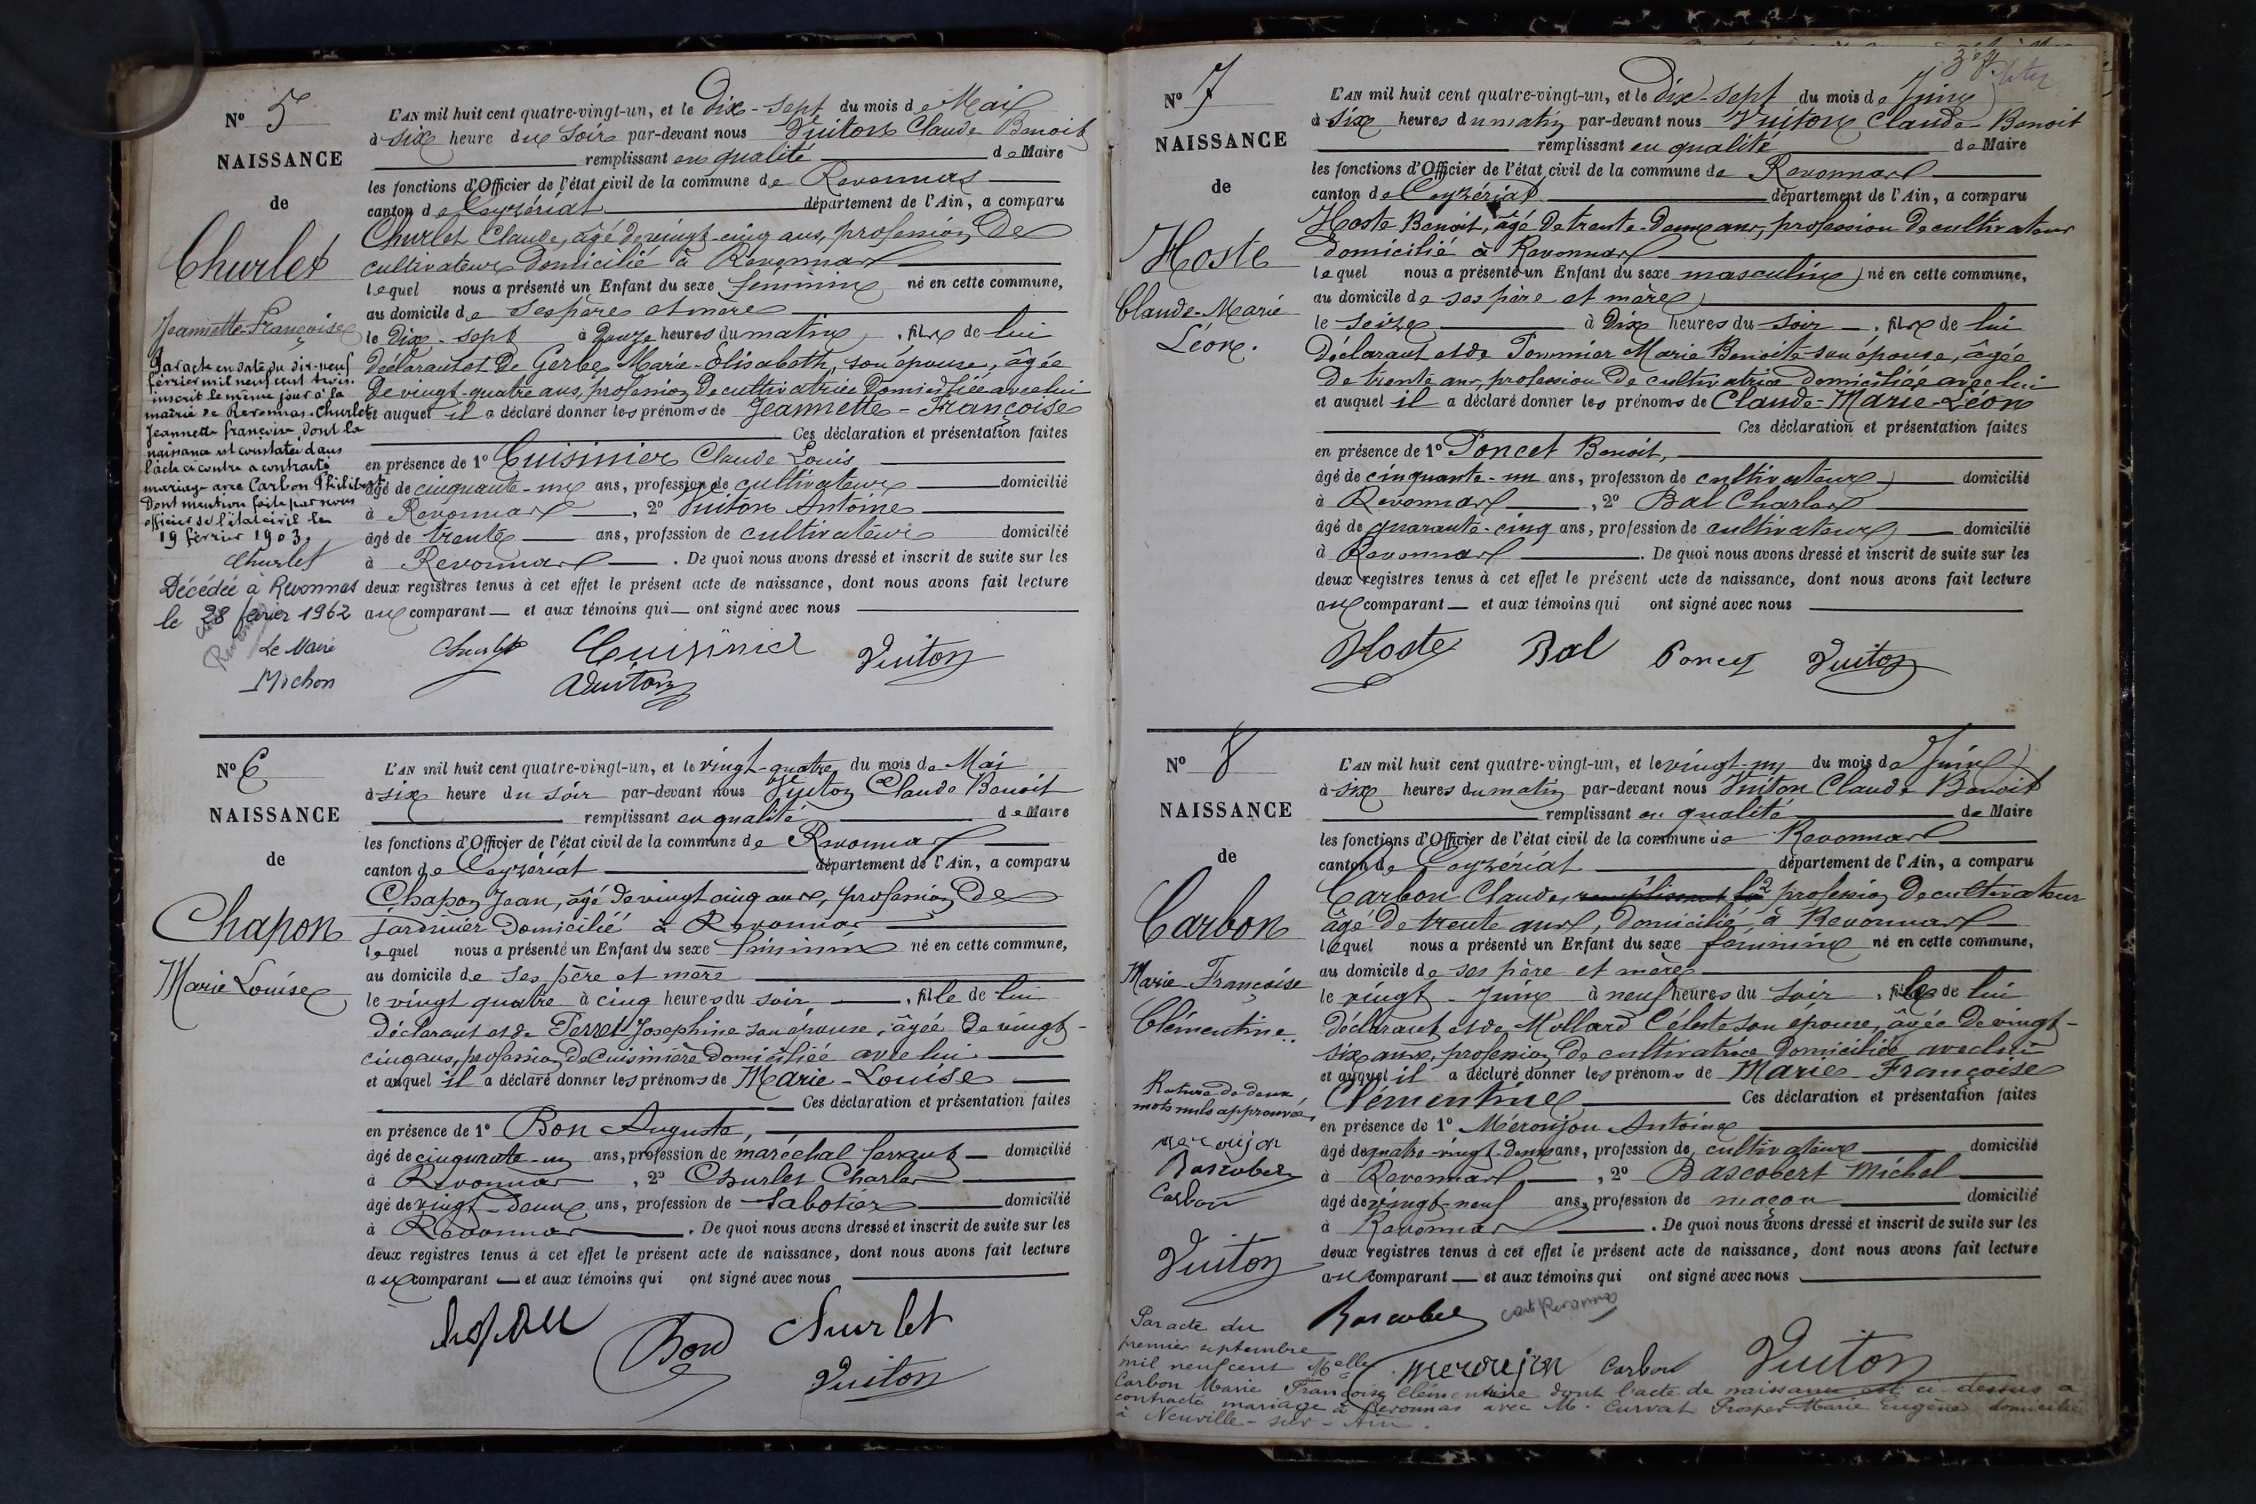 Nº 5
NAISSANCE
de
Churlet
Jeannette-Françoise
Par acte en date du dix-neuf
février mil neuf cent trois
inscrit le même jour à la
mairie de Revonnas. Churlet
Jeannette françoise, dont la
naissance est constatée dans
l'acte ci contre a contracté
mariage avec Carbon Philibert
Dont mention faite par nous
officier de l'état civil le
19 février 1903.
Churlet
Décédée à Revonnas
le 28 février 1962
Le Maire
Michon
L'AN mil huit cent quatre-vingt-un, et le Dix-sept du mois de Mai
à six heure du soir par-devant nous Vuiton Claude Benoit
remplissant en qualité de Maire
les fonctions d'Officier de l'état civil de la commune de Revonnas
canton de Ceyzériat département de l'Ain, a comparu
Churlet Claude, âgé de vingt-cinq ans, profession de
cultivateur domicilié à Revonnas
lequel nous a présenté un Enfant du sexe féminin né en cette commune,
au domicile de ses père et mère
le Dix-sept à onze heures du matin, fille de lui
déclarant et de Gerbe Marie-Elisabeth, son épouse, âgée
de vingt-quatre ans, profession de cultivatrice domiciliée avec lui
et auquel il a déclaré donner les prénoms de Jeannette-Françoise
Ces déclaration et présentation faites
en présence de 1º Cuisinier Claude Louis
âgé de cinquante-un ans, profession de cultivateur domicilié
à Revonnas, 2º Vuiton Antoine
âgé de trente ans, profession de cultivateur domicilié
à Revonnas. De quoi nous avons dressé et inscrit de suite sur les
deux registres tenus à cet effet le présent acte de naissance, dont nous avons fait lecture
aux comparant et aux témoins qui ont signé avec nous
Churlet Cuisinier Vuiton
AVuiton
Nº 6
NAISSANCE
de
Chapon
Marie Louise
L'AN mil huit cent quatre-vingt-un, et le vingt-quatre du mois de Mai
à six heure du soir par-devant nous Vuiton Claude Benoit
remplissant en qualité de Maire
les fonctions d'Officier de l'état civil de la commune de Revonnas
canton de Ceyzériat département de l'Ain, a comparu
Chapon Jean, âgé de vingt cinq ans, profession de
jardinier domicilié à Revonnas
lequel nous a présenté un Enfant du sexe féminin né en cette commune,
au domicile de ses père et mère
le vingt quatre à cinq heures du soir, fille de lui
déclarant et de Perret Josephine son épouse, âgée de vingt-
cinq ans, profession de cuisinière domiciliée avec lui
et auquel il a déclaré donner les prénoms de Marie-Louise
Ces déclaration et présentation faites
en présence de 1º Bon Auguste,
âgé de cinquante-un ans, profession de maréchal ferrant domicilié
à Revonnas, 2º Churlet Charles
âgé de vingt-deux ans, profession de Sabotier domicilié
à Revonnas. De quoi nous avons dressé et inscrit de suite sur les
deux registres tenus à cet effet le présent acte de naissance, dont nous avons fait lecture
aux comparant et aux témoins qui ont signé avec nous
Bon Churlet
Vuiton
Nº 7
NAISSANCE
de
Hoste
Claude-Marie
Léon.
L'AN mil huit cent quatre-vingt-un, et le Dix-sept du mois de Juin
à six heures du matin par-devant nous Vuiton Claude-Benoit
remplissant en qualité de Maire
les fonctions d'Officier de l'état civil de la commune de Revonnas
canton de Ceyzériat département de l'Ain, a comparu
Hoste Benoit, âgé de trente-deux ans, profession de cultivateur
domicilié à Revonnas
lequel nous a présenté un Enfant du sexe masculin né en cette commune,
au domicile de ses père et mère
le seize à Dix heures du soir, fils de lui
déclarant et de Pommier Marie Benoite son épouse, âgée
de trente ans, profession de cultivatrice domiciliée avec lui
et auquel il a déclaré donner les prénoms de Claude-Marie-Léon
Ces déclaration et présentation faites
en présence de 1º Poncet Benoit,
âgé de cinquante-un ans, profession de cultivateur domicilié
à Revonnas, 2º Bal Charles
âgé de quarante-cinq ans, profession de cultivateur domicilié
à Revonnas. De quoi nous avons dressé et inscrit de suite sur les
deux registres tenus à cet effet le présent acte de naissance, dont nous avons fait lecture
aux comparant et aux témoins qui ont signé avec nous
Hoste Bal Poncet Vuiton
Nº 8
NAISSANCE
de
Carbon
Marie Françoise
Clémentine.
Rature de deux
mots nuls approuvée
meroujon
Bascobert
Carbon
Vuiton
L'AN mil huit cent quatre-vingt-un, et le vingt-un du mois de Juin
à six heures du matin par-devant nous Vuiton Claude Benoit
remplissant en qualité de Maire
les fonctions d'Officier de l'état civil de la commune de Revonnas
canton de Ceyzériat département de l'Ain, a comparu
Carbon Claude, profession de cultivateur
âgé de trente ans, domicilié à Revonnas
lequel nous a présenté un Enfant du sexe féminin né en cette commune,
au domicile de ses père et mère
le vingt-Juin à neuf heures du soir, fille de lui
déclarant et de Mollard Céleste son épouse, âgée de vingt-
six ans, profession de cultivatrice domiciliée avec lui
et auquel il a déclaré donner les prénoms de Marie Françoise
Clémentine Ces déclaration et présentation faites
en présence de 1º Méroujon Antoine
âgé de quatre-vingt-deux ans, profession de cultivateur domicilié
à Revonnas, 2º Bascobert Michel
âgé de vingt-neuf ans, profession de maçon domicilié
à Revonnas. De quoi nous avons dressé et inscrit de suite sur les
deux registres tenus à cet effet le présent acte de naissance, dont nous avons fait lecture
aux comparant et aux témoins qui ont signé avec nous
Bascobert
meroujon Carbon Vuiton
Par acte du
premier septembre
mil neuf cent Melle
Carbon Marie Françoise Clémentine dont l'acte de naissance est ci-dessus a
contracté mariage à Revonnas avec M. Curvat Prosper Marie Eugène domicilié
à Neuville-sur-Ain.